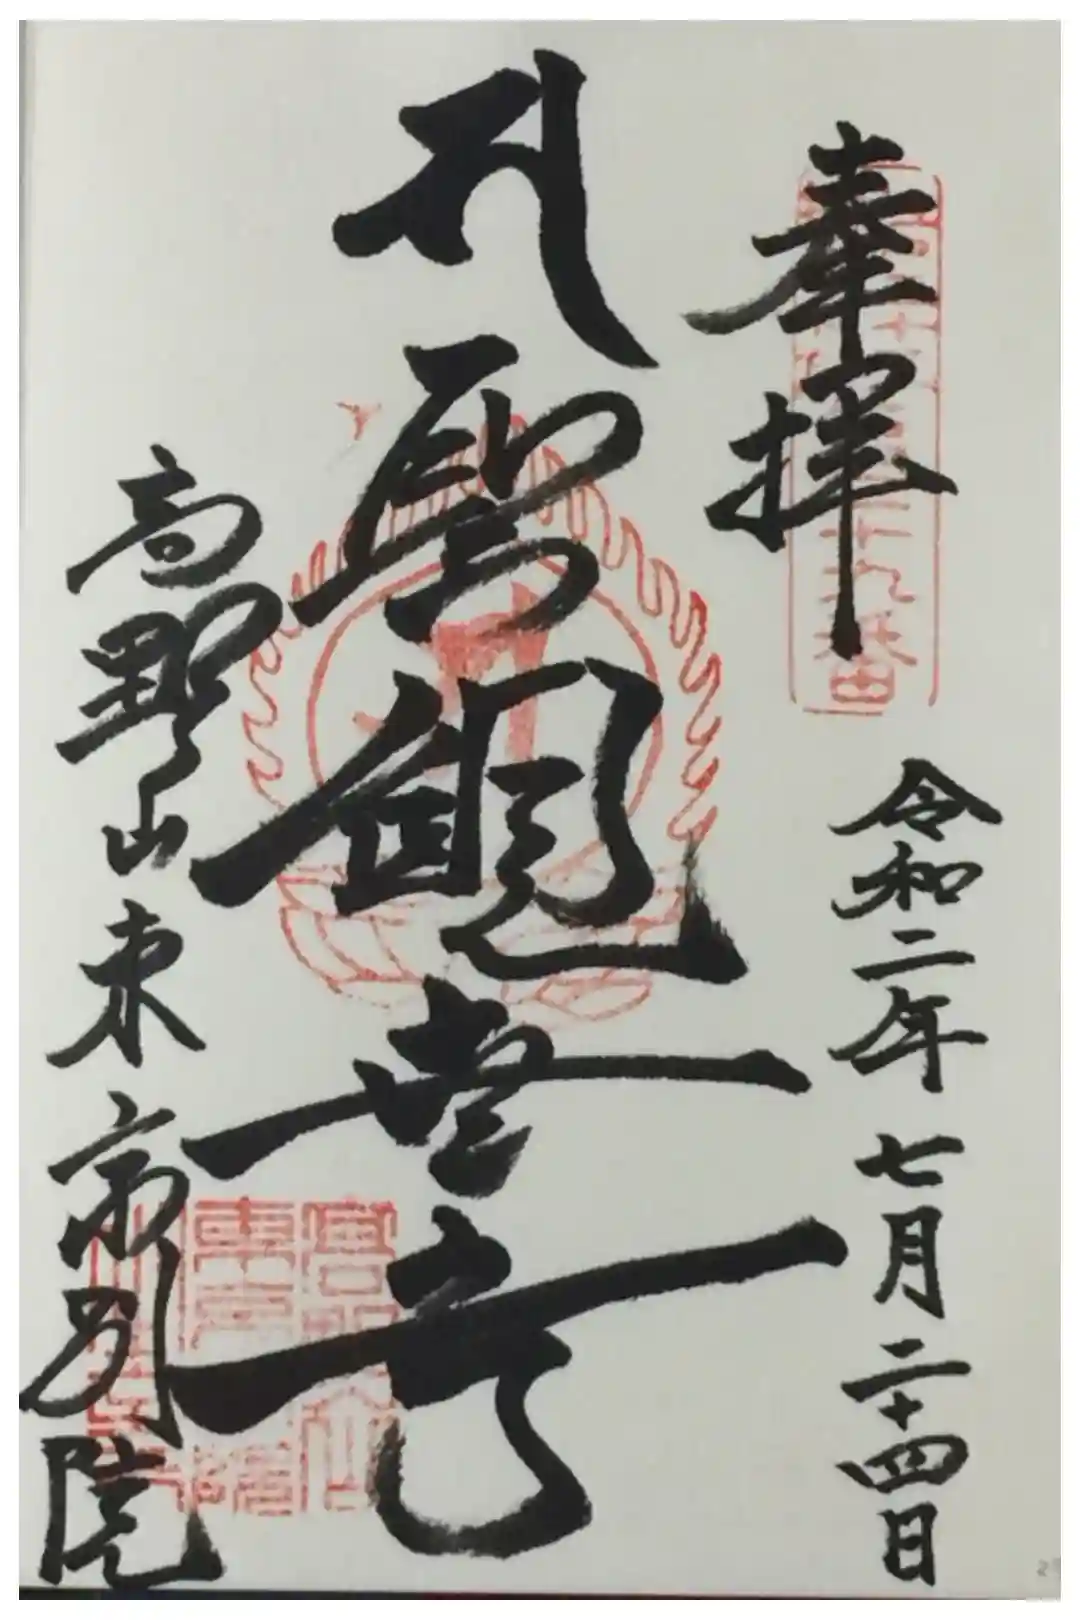 奉拝
令和二年七月二十四日
聖観世音
高野山東京別院